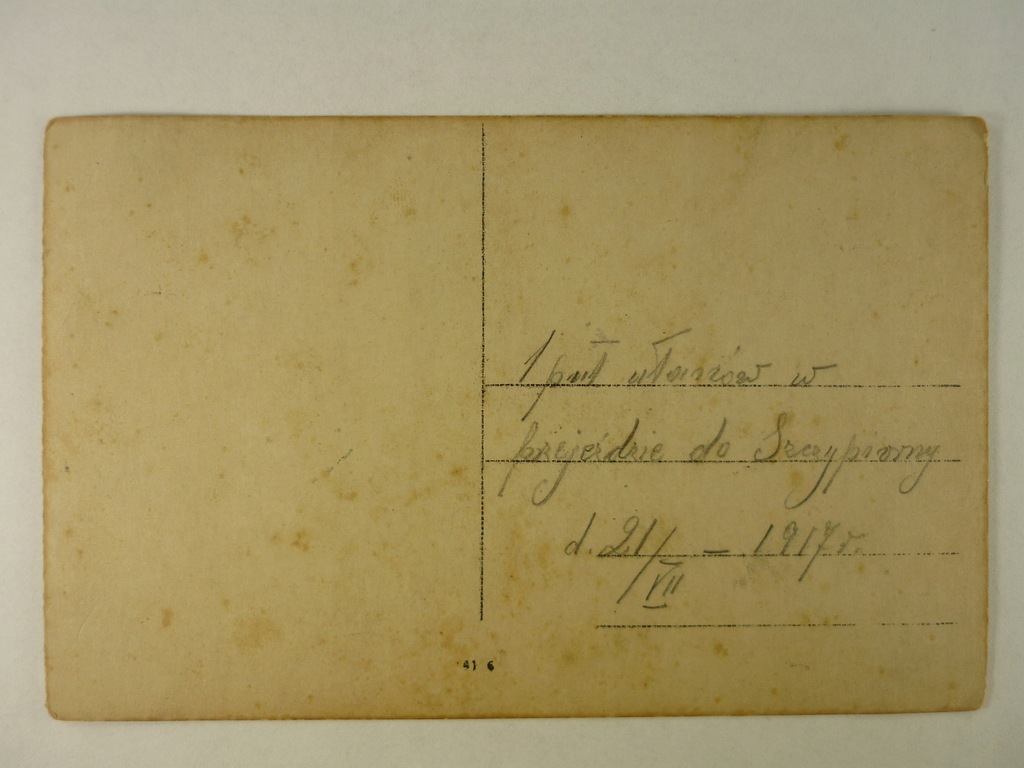 1 puł ułanów w
przejeździe do Szczypiorny
d. 21/VII — 1917 r.
41 6